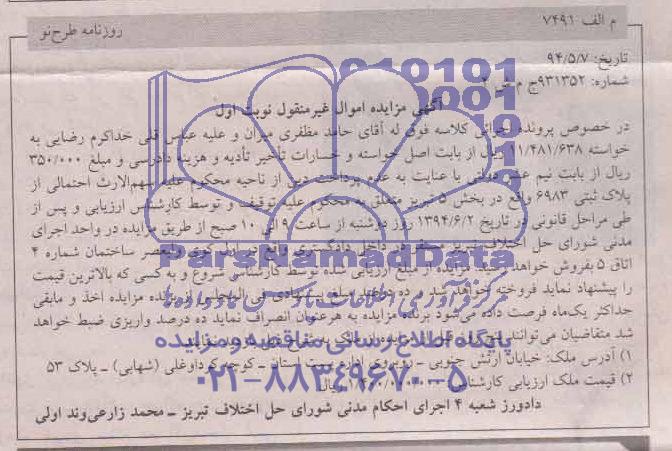 م الف ۷۴۹۱
روزنامه طرح‌نو
تاریخ: ۹۴/۵/۷
شماره: ۹۳۱۳۵۲ج م ش ۴
آگهی مزایده اموال غیرمنقول نوبت اول
در خصوص پرونده اجرائی کلاسه فوق له آقای حامد مظفری میران و علیه عباس قلی خداکرم رضایی به
خواسته ۱۱/۴۸۱/۶۳۸ ریال از بابت اصل خواسته و خسارات تأخیر تأدیه و هزینه دادرسی و مبلغ ۳۵۰/۰۰۰
ریال از بابت نیم عشر دولتی با عنایت به عدم پرداخت دین از ناحیه محکوم علیه سهم‌الارث احتمالی از
پلاک ثبتی ۶۹۸۳ واقع در بخش ۵ تبریز متعلق به محکوم علیه توقیف و توسط کارشناس ارزیابی و پس از
طی مراحل قانونی در تاریخ ۱۳۹۴/۶/۲ روز دوشنبه از ساعت ۹ الی ۱۰ صبح از طریق مزایده در واحد اجرای
مدنی شورای حل اختلاف تبریز مستقر در داخل دادگستری واقع ولیعصر ساختمان شماره ۴
اتاق ۵ بفروش خواهد رسید. مزایده از مبلغ ارزیابی شده توسط کارشناس شروع و به کسی که بالاترین قیمت
را پیشنهاد نماید فروخته خواهد شد و ده درصد مبلغ پیشنهادی فی المجلس از برنده مزایده اخذ و مابقی
حداکثر یک‌ماه فرصت داده می‌شود برنده مزایده به هرعنوان انصراف نماید ده درصد واریزی ضبط خواهد
شد متقاضیان می‌توانند قبل از ملک
۱) آدرس ملک: خیابان ارتش جنوبی ـ روبروی اداره پست استان ـ کوچه کرداوغلی (شهابی) ـ پلاک ۵۳
۲) قیمت ملک ارزیابی کارشناس ریال
دادورز شعبه ۴ اجرای احکام مدنی شورای حل اختلاف تبریز ـ محمد زارعی‌وند اولی
ParsNamadData
پایگاه اطلاع رسانی مناقصه و مزایده
۰۲۱-۸۸۳۴۹۶۷۰-۵